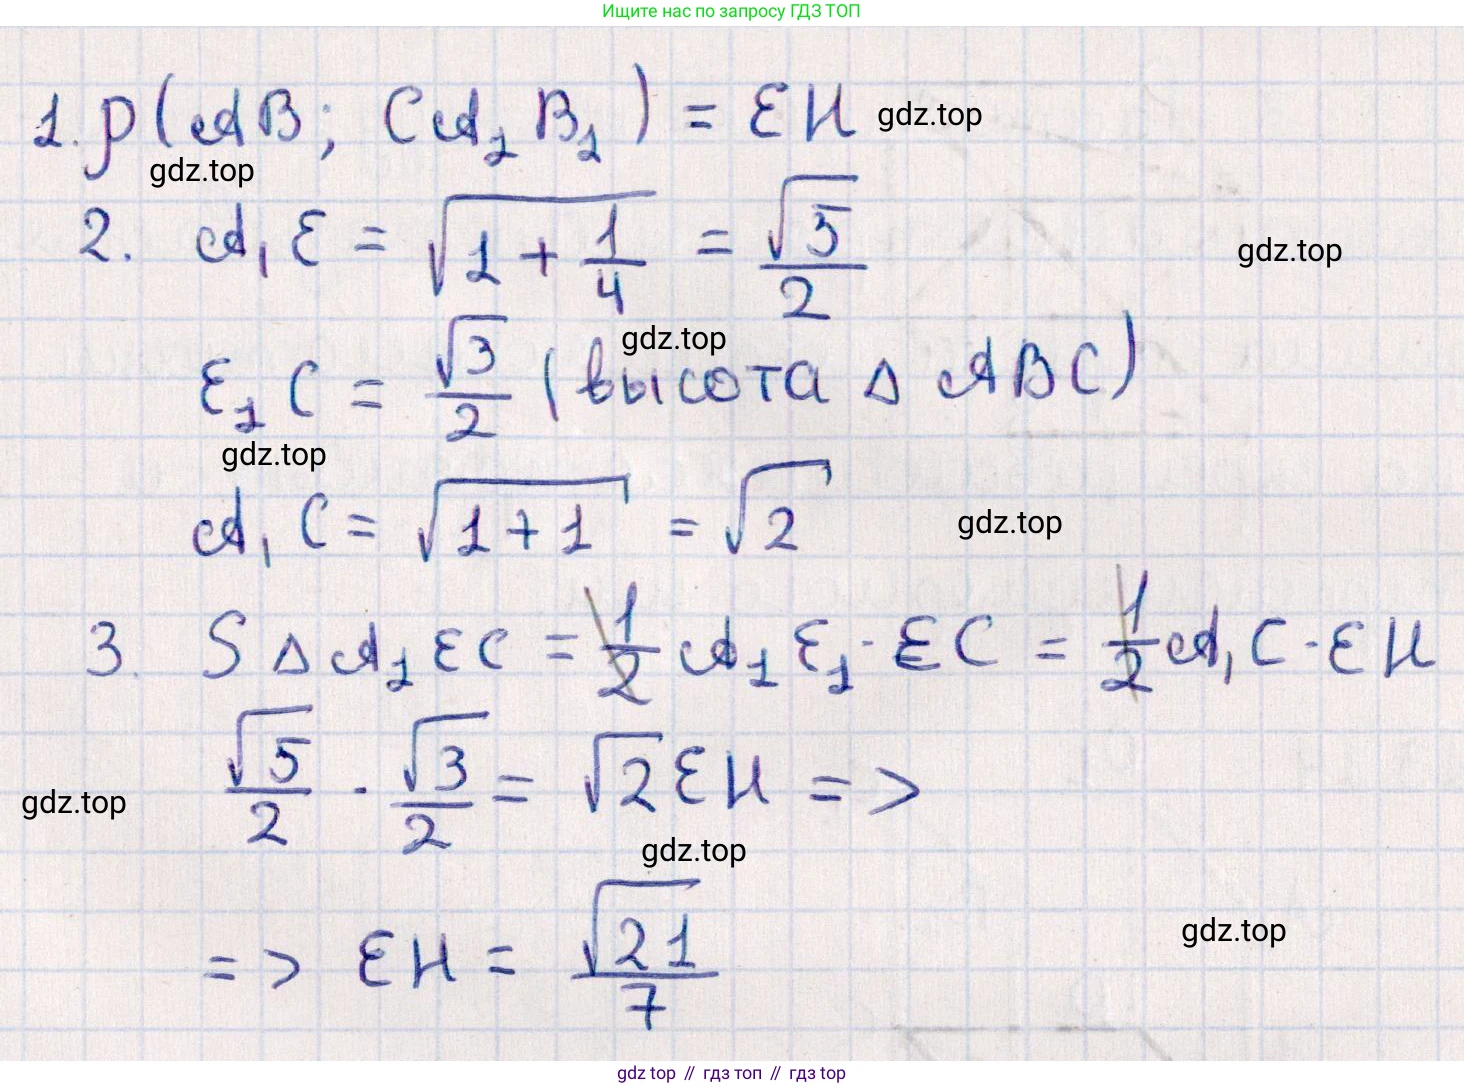 Ищите нас по запросу ГДЗ ТОП
1. ρ(AB; CA₁B₁) = EH gdz.top
gdz.top
2. A₁E = √(1 + 1/4) = √5/2
gdz.top
gdz.top
E₁C = √3/2 (высота Δ ABC)
gdz.top
A₁C = √(1+1) = √2 gdz.top
3. SΔA₁EC = 1/2 A₁E₁ · EC = 1/2 A₁C · EH
√5/2 · √3/2 = √2 EH =>
gdz.top
gdz.top
=> EH = √21/7
gdz.top
gdz top // гдз топ // gdz top